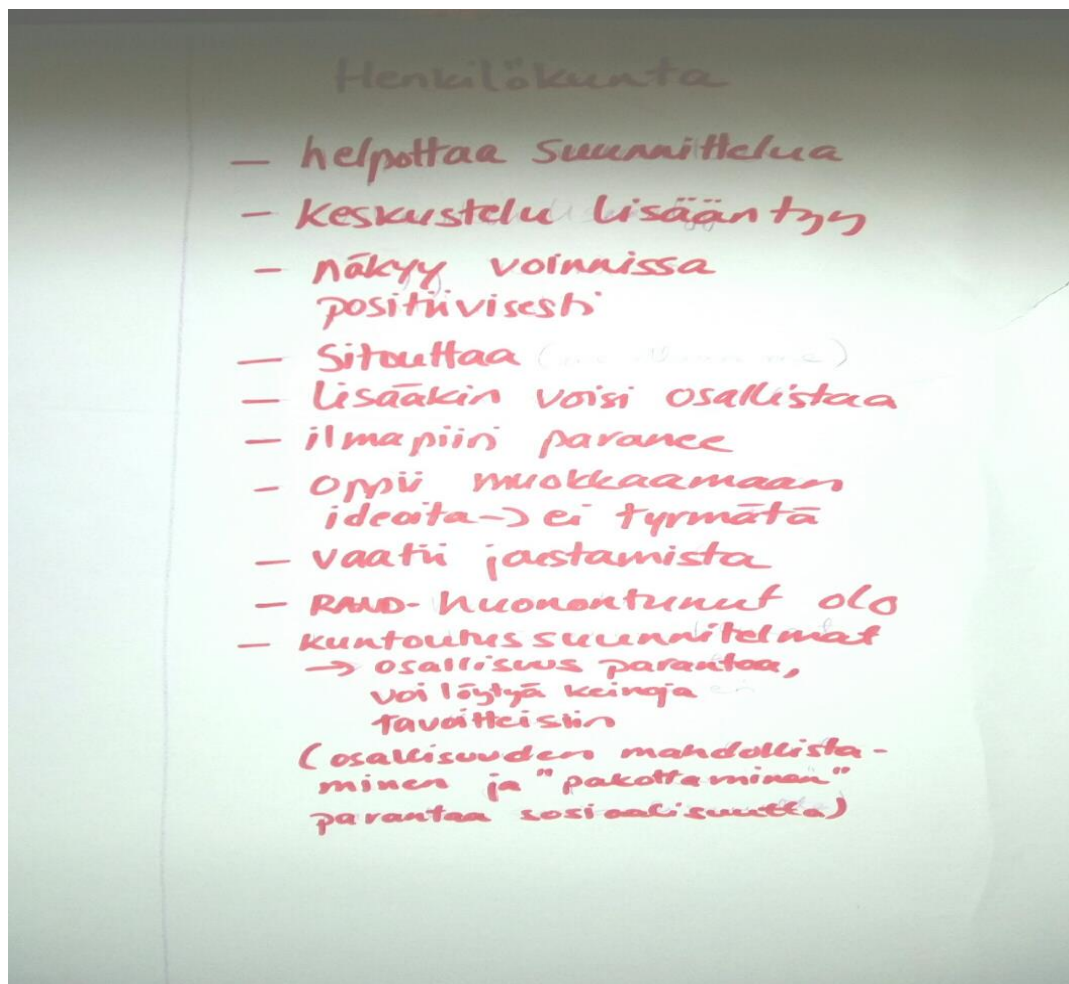 Henkilökunta
- helpottaa suunnittelua
- Keskustelu lisääntyy
- näkyy voinnissa
positiivisesti
- Sitouttaa
- Lisääkin voisi osallistaa
- ilmapiiri paranee
- Oppii muokkaamaan
ideoita -> ei tyrmätä
- vaatii jaostamista
- RAND- huonontunut olo
- kuntoutussuunnitelmat
-> osallisuus parantaa,
voi löytyä keinoja
tavoitteisiin
(osallisuuden mahdollista-
minen ja "pakottaminen"
parantaa sosiaalisuutta)